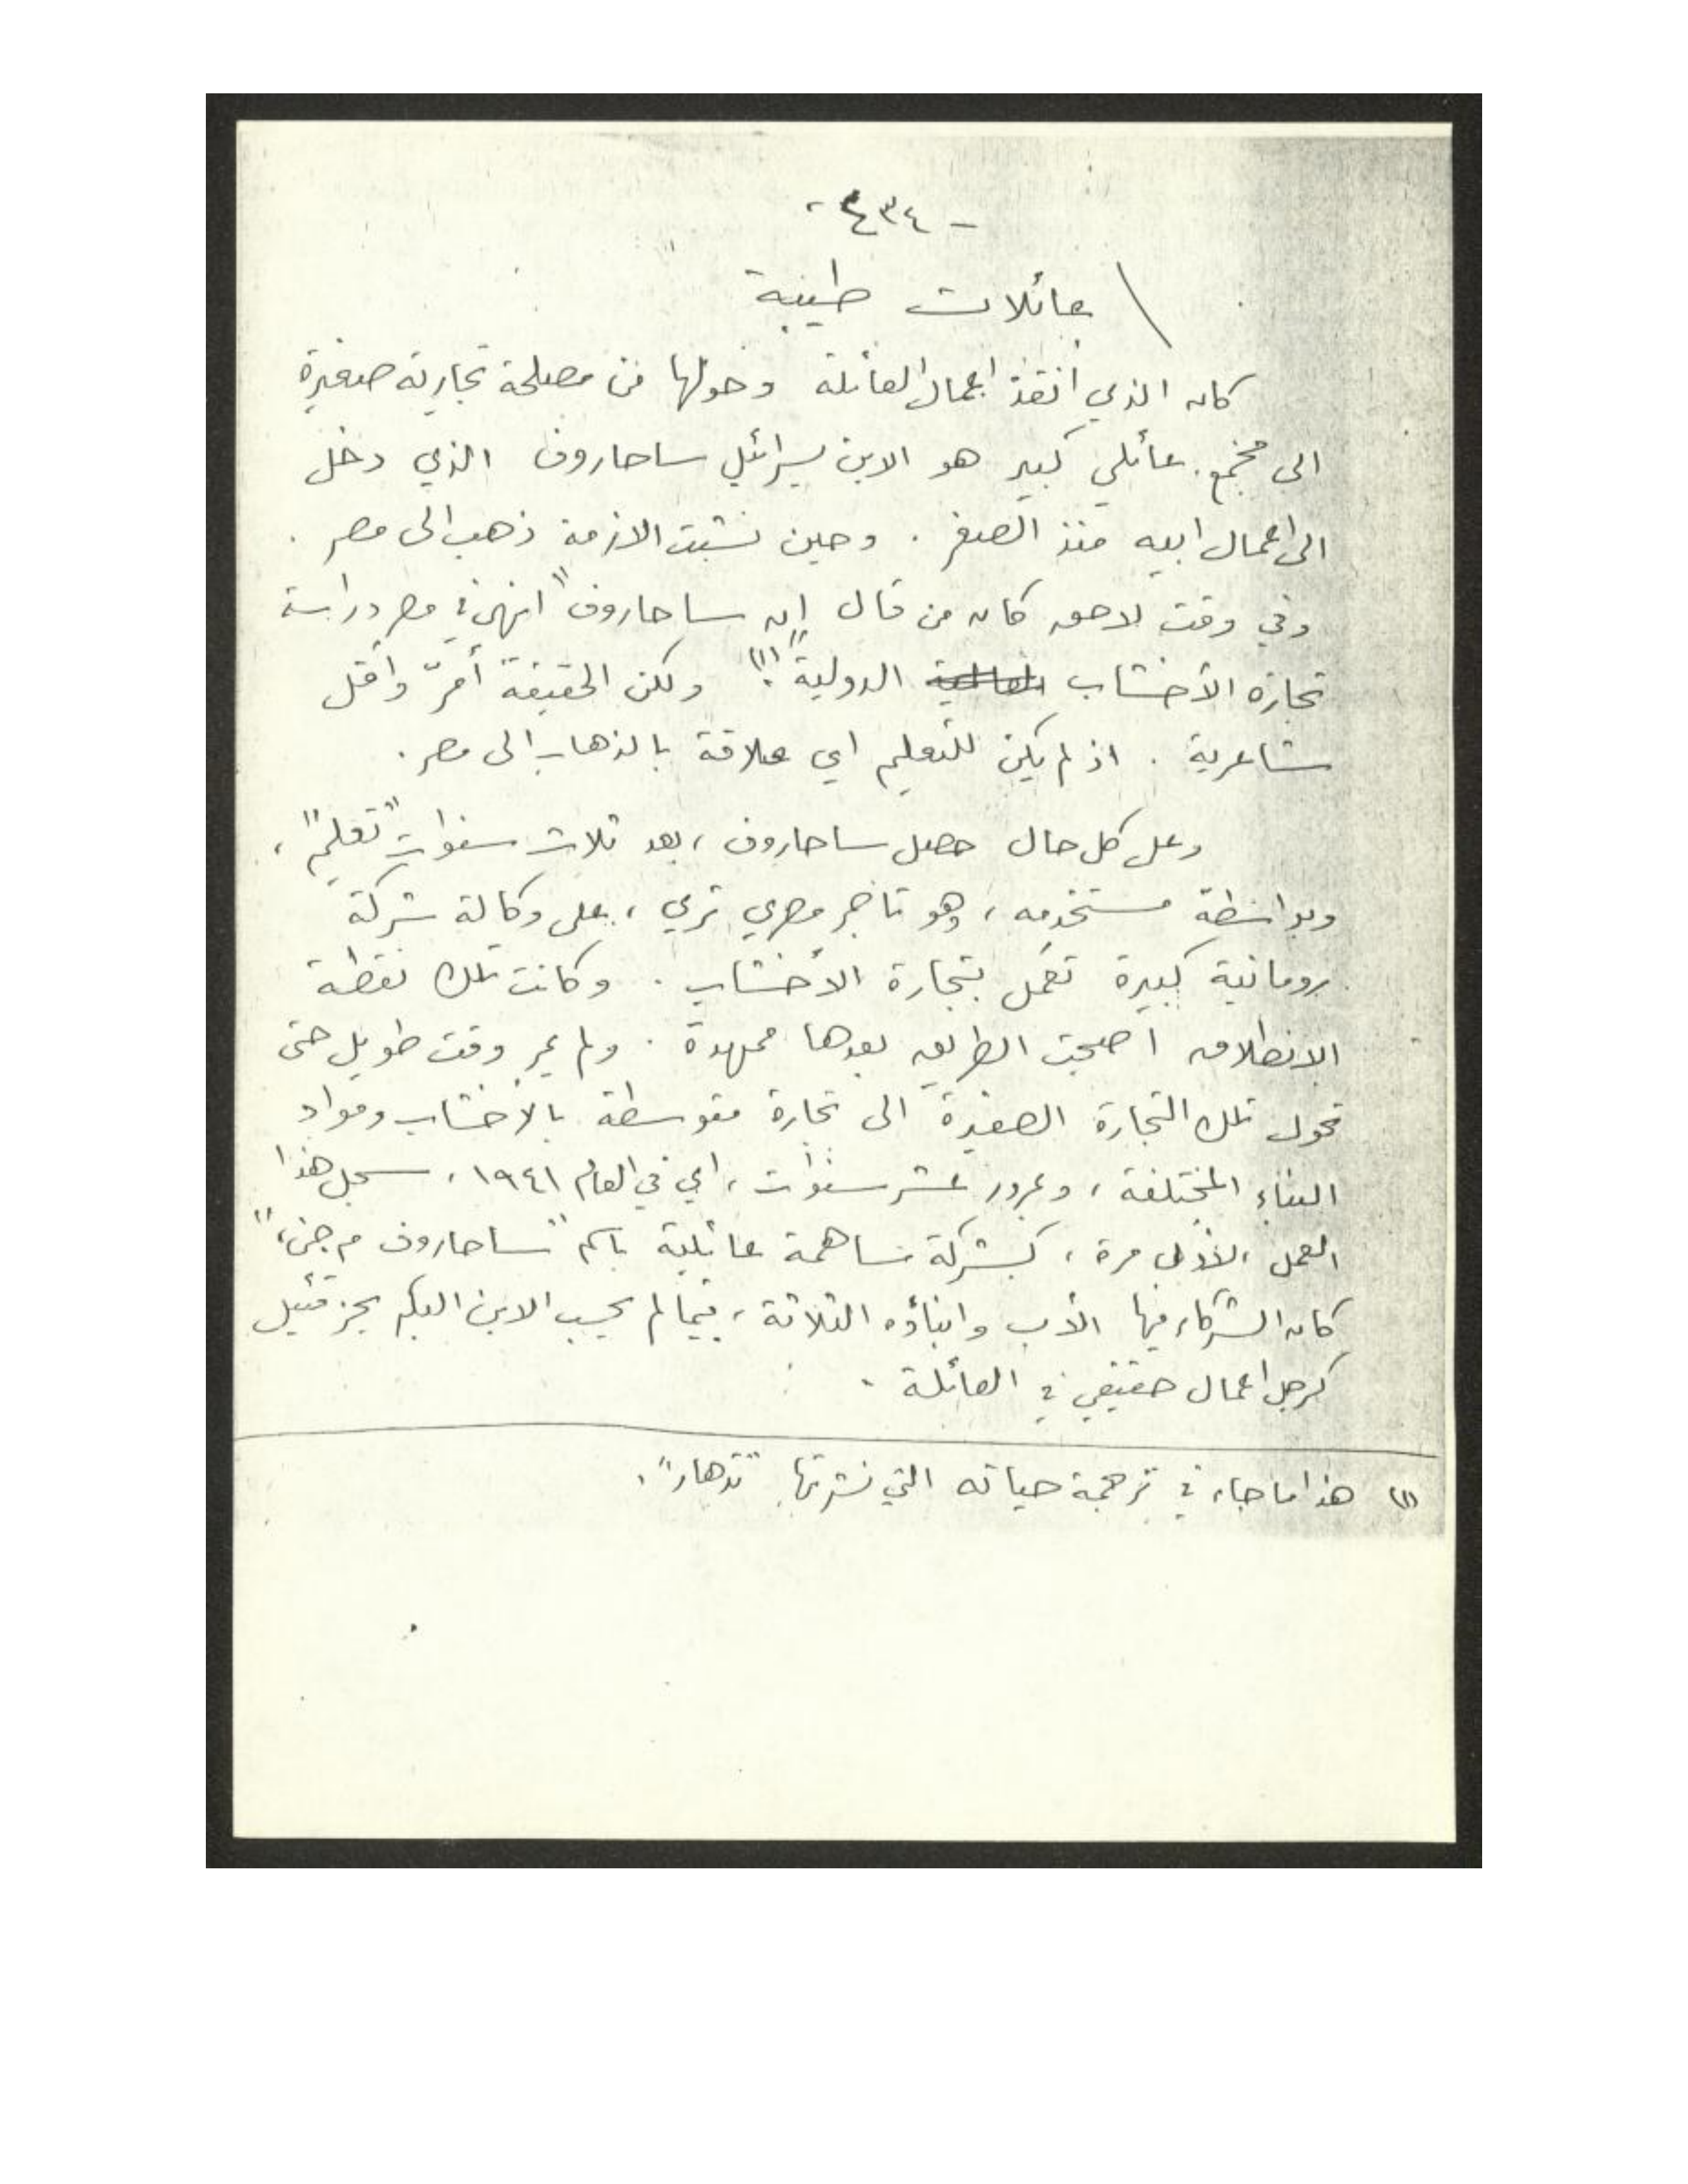 - ٤٣٤ -
عائلات طيبة
كان الذي أنقذ أعمال العائلة وحولها من مصلحة تجارية صغيرة
الى مجمع عائلي كبير هو الابن يسرائيل ساحاروف الذي دخل
الى اعمال ابيه منذ الصغر . وحين نشبت الازمة ذهب الى مصر .
وفي وقت لاحق كان من قال إن ساحاروف "انهى في مصر دراسة
تجارة الأخشاب الدولية"(١) ولكن الحقيقة أمرّ وأقل
شاعرية . اذ لم يكن للتعليم اي علاقة بالذهاب الى مصر .
وعلى كل حال حصل ساحاروف ، بعد ثلاث سنوات "تعليم" ،
وبواسطة مستخدمه ، وهو تاجر مصري ثري ، على وكالة شركة
رومانية كبيرة تعمل بتجارة الأخشاب . وكانت تلك نقطة
الانطلاق اصبحت الطريق بعدها ممهدة . ولم يمر وقت طويل حتى
تحول تلك التجارة الصغيرة الى تجارة متوسطة بالأخشاب ومواد
البناء المختلفة ، وبمرور عشر سنوات ، اي في العام ١٩٤١ ، سجل هذا
العمل ، لأول مرة ، كشركة مساهمة عائلية باسم "ساحاروف م.ض" ،
كان الشركاء فيها الأب وابناؤه الثلاثة ، فيما لم يحسب الابن البكر يحزقئيل
كرجل اعمال حقيقي في العائلة .
(١) هذا ما جاء في ترجمة حياته التي نشرتها "تدهار" .